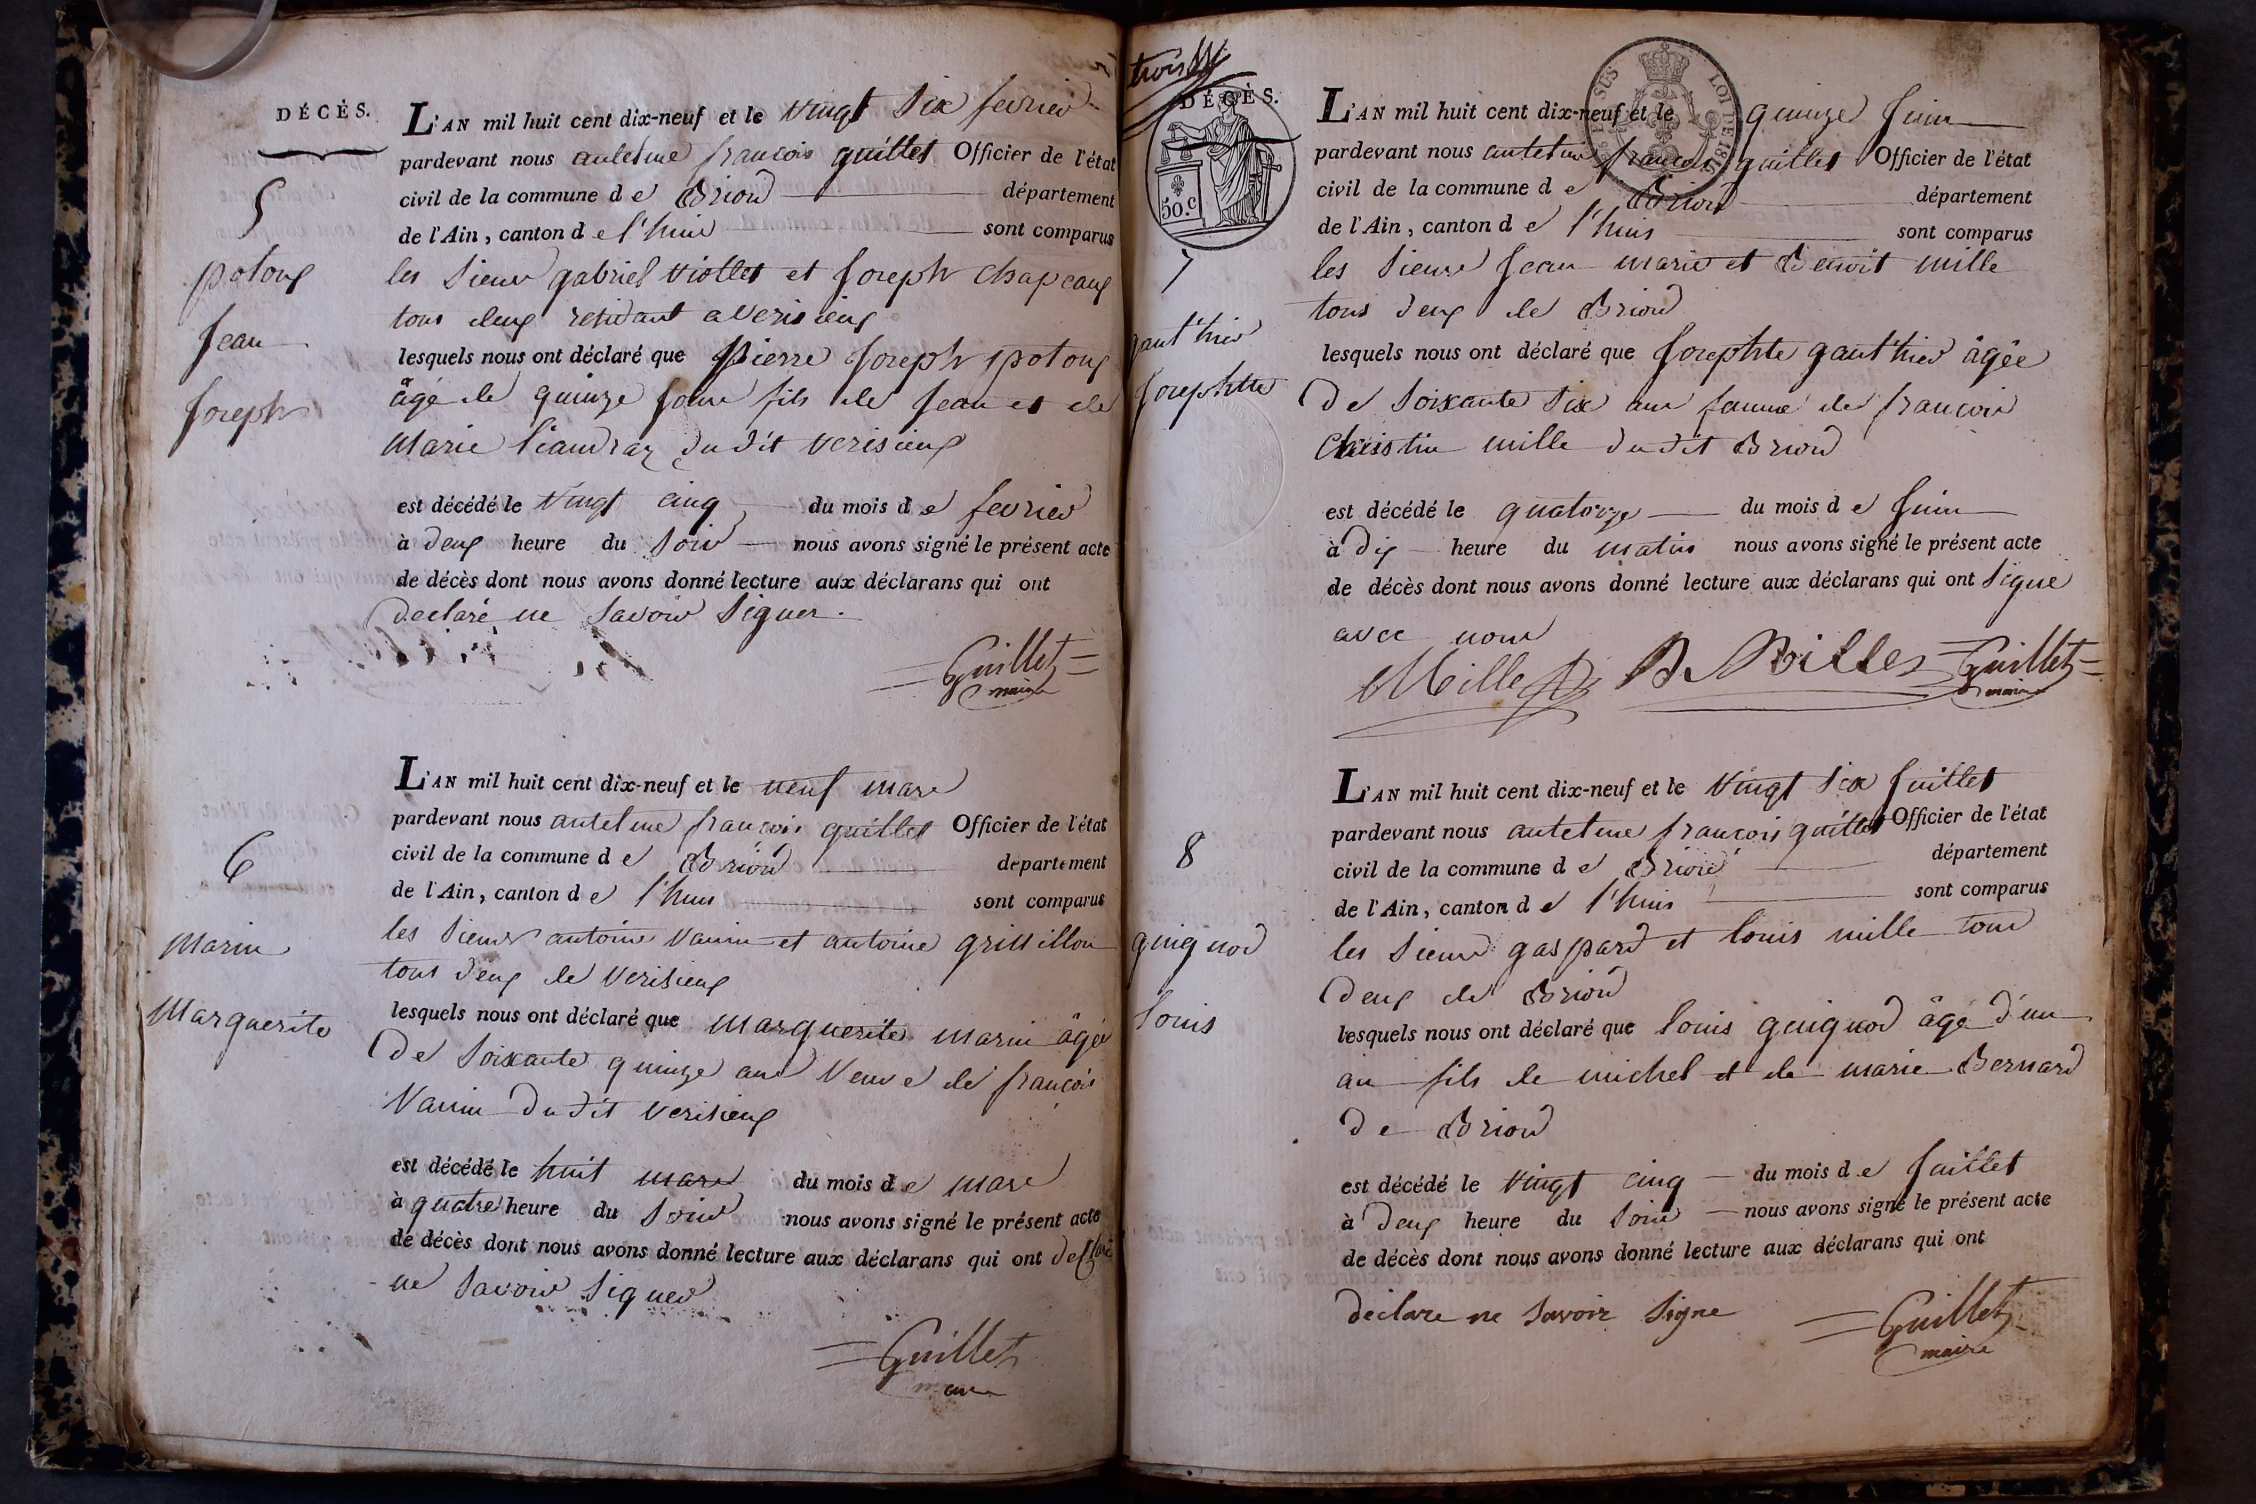 DÉCÈS.
5
potoux
Jean
Joseph
L'AN mil huit cent dix-neuf et le vingt six fevrier
pardevant nous antelme françois guillet Officier de l'état
civil de la commune d e Briord département
de l'Ain, canton d e l'huis sont comparus
les sieurs gabriel viollet et Joseph Chapeaux
tous deux residant a verisieux
lesquels nous ont déclaré que Pierre Joseph potoux
âgé de quinze jours fils de Jean et de
Marie du dit verisieux
est décédé le vingt cinq du mois d e fevrier
à deux heure du soir nous avons signé le présent acte
de décès dont nous avons donné lecture aux déclarans qui ont
declaré ne savoir signer.
Guillet
maire
6
Marin
Marguerite
L'AN mil huit cent dix-neuf et le neuf mars
pardevant nous antelme françois guillet Officier de l'état
civil de la commune d e Briord departement
de l'Ain, canton d e l'huis sont comparus
les sieurs antoine vanin et antoine grisillon
tous deux de verisieux
lesquels nous ont déclaré que marguerite marin âgée
de soixante quinze ans veuve de françois
Vanin du dit verisieux
est décédé le huit mars du mois d e mars
à quatre heure du soir nous avons signé le présent acte
de décès dont nous avons donné lecture aux déclarans qui ont
ne savoir signer
Guillet
maire
trois
DÉCÈS.
50.c
SUS LOI DE 1816
7
gant'hier
Josephtte
L'AN mil huit cent dix-neuf et le quinze Juin
pardevant nous antelme françois guillet Officier de l'état
civil de la commune d e Briord département
de l'Ain, canton d e l'huis sont comparus
les sieurs Jean marie et Benoit mille
tous deux de Briord
lesquels nous ont déclaré que Josephte gant'hier âgée
De soixante six ans femme de françois
Christin mille du dit Briord
est décédé le quatorze du mois d e Juin
à dix heure du matin nous avons signé le présent acte
de décès dont nous avons donné lecture aux déclarans qui ont signé
avec nous
Mille B Milles Guillet
maire
8
guignod
louis
L'AN mil huit cent dix-neuf et le vingt six Juillet
pardevant nous antelme françois guillet Officier de l'état
civil de la commune d e Briord département
de l'Ain, canton d e l'huis sont comparus
les sieurs gaspard et louis mille tous
deux de Briord
lesquels nous ont déclaré que louis guignod âgé d'un
an fils de michel et de marie Bernard
De Briord
est décédé le vingt cinq du mois d e Juillet
à deux heure du soir nous avons signé le présent acte
de décès dont nous avons donné lecture aux déclarans qui ont
déclare ne savoir signe
Guillet
maire